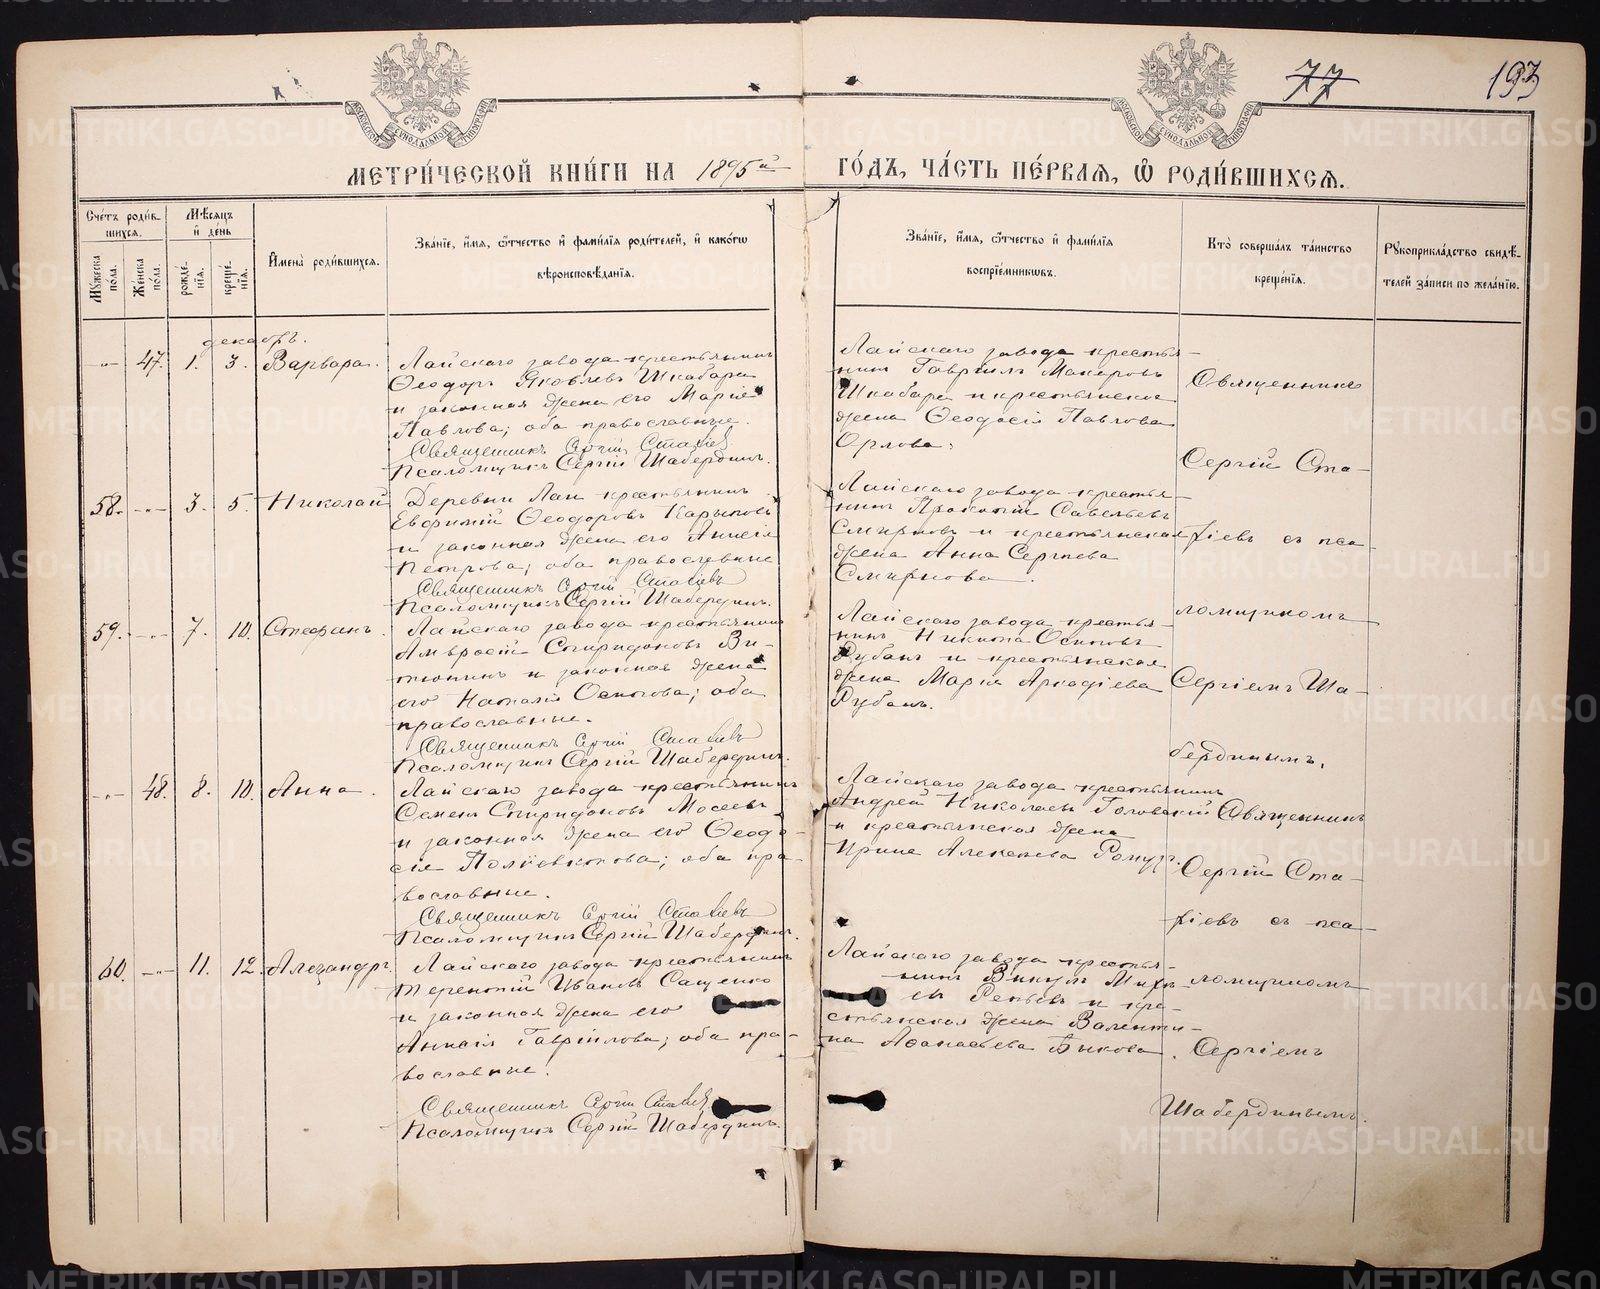 77
193
МОСКОВСКОЙ СѴНОДАЛЬНОЙ ТИПОГРАФІИ
МОСКОВСКОЙ СѴНОДАЛЬНОЙ ТИПОГРАФІИ
МЕТРИ́ЧЕСКОЙ КНИ́ГИ НА 1895й ГО́ДЪ, ЧА́СТЬ ПЕ́РВАѦ, Ѡ РОДИ́ВШИХСѦ.
Сче́тъ роди́в-
шихсѧ.
Мꙋжеска по́ла.
Же́нска по́ла.
Мѣ́сѧцъ
и҆ де́нь
рожде́-
нїѧ.
креще́-
нїѧ.
И҆мена̀ роди́вшихсѧ.
Зва́нїе, и҆́мѧ, ѻ҆́тчество и҆ фами́лїѧ роди́телей, и҆ како́гѡ
вѣроисповѣ́данїѧ.
Зва́нїе, и҆́мѧ, ѻ҆́тчество и҆ фами́лїѧ
воспрїе́мниковъ.
Кто̀ соверша́лъ та́инство
креще́нїѧ.
Рꙋкоприкла́дство свидѣ́-
телей за́писи по жела́нїю.
декабрь.
-„- 47. 1. 3. Варвара.
Лайскаго завода крестьянинъ
Ѳеодоръ Яковлевъ Шкабара
и законная жена его Марія
Павлова; оба православные.
Священникъ Сергій Стафіев
Псаломщикъ Сергій Шабердинъ.
Лайскаго завода крестья-
нинъ Гавріилъ Макаровъ
Шкабара и крестьянская
жена Ѳеодосія Павлова
Орлова.
Священникъ
Сергій Ста-
58. -„- 3. 5. Николай
Деревни Лаи крестьянинъ
Евфимій Ѳеодоровъ Карыповъ
и законная жена его Анисія
Петрова; оба православные
Священникъ Сергій Стафіевъ
Псаломщикъ Сергій Шабердинъ.
Лайскаго завода крестья-
нинъ Прокопій Савельевъ
Смирновъ и крестьянская
жена Анна Сергѣева
Смирнова.
фіевъ съ пса-
59. -„- 7. 10. Стефанъ.
Лайскаго завода крестьянинъ
Амвросій Спиридоновъ Ви-
тюнинъ и законная жена
его Наталія Осипова; оба
православные.
Священникъ Сергій Стафіевъ
Псаломщикъ Сергій Шабердинъ.
Лайскаго завода крестья-
нинъ Никита Осиповъ
Рубанъ и крестьянская
жена Марія Аркадіева
Рубанъ.
ломщикомъ
Сергіемъ Ша-
бердинымъ.
-„- 48. 8. 10. Анна.
Лайскаго завода крестьянинъ
Семенъ Спиридоновъ Мосеевъ
и законная жена его Ѳеодо-
сія; оба пра-
вославные.
Священникъ Сергій Стафіевъ
Псаломщикъ Сергій Шабердинъ.
Лайскаго завода крестьянинъ
Андрей Николаевъ Головскій
и крестьянская жена
Ирина Алексѣева
Священникъ
Сергій Ста-
фіевъ съ пса-
60. -„- 11. 12. Александръ.
Лайскаго завода крестьянинъ
Терентій Ивановъ Сащенко
и законная жена его
Аннаія Гавріилова; оба пра-
вославные.
Священникъ Сергій Стафіевъ
Псаломщикъ Сергій Шабердинъ.
Лайскаго завода крестья-
нинъ Викулъ Миха-
евъ Реньовъ и кре-
стьянская жена Валенти-
на Аѳанасьева Быкова.
ломщикомъ
Сергіемъ
Шабердинымъ.
METRIKI.GASO-URAL.RU